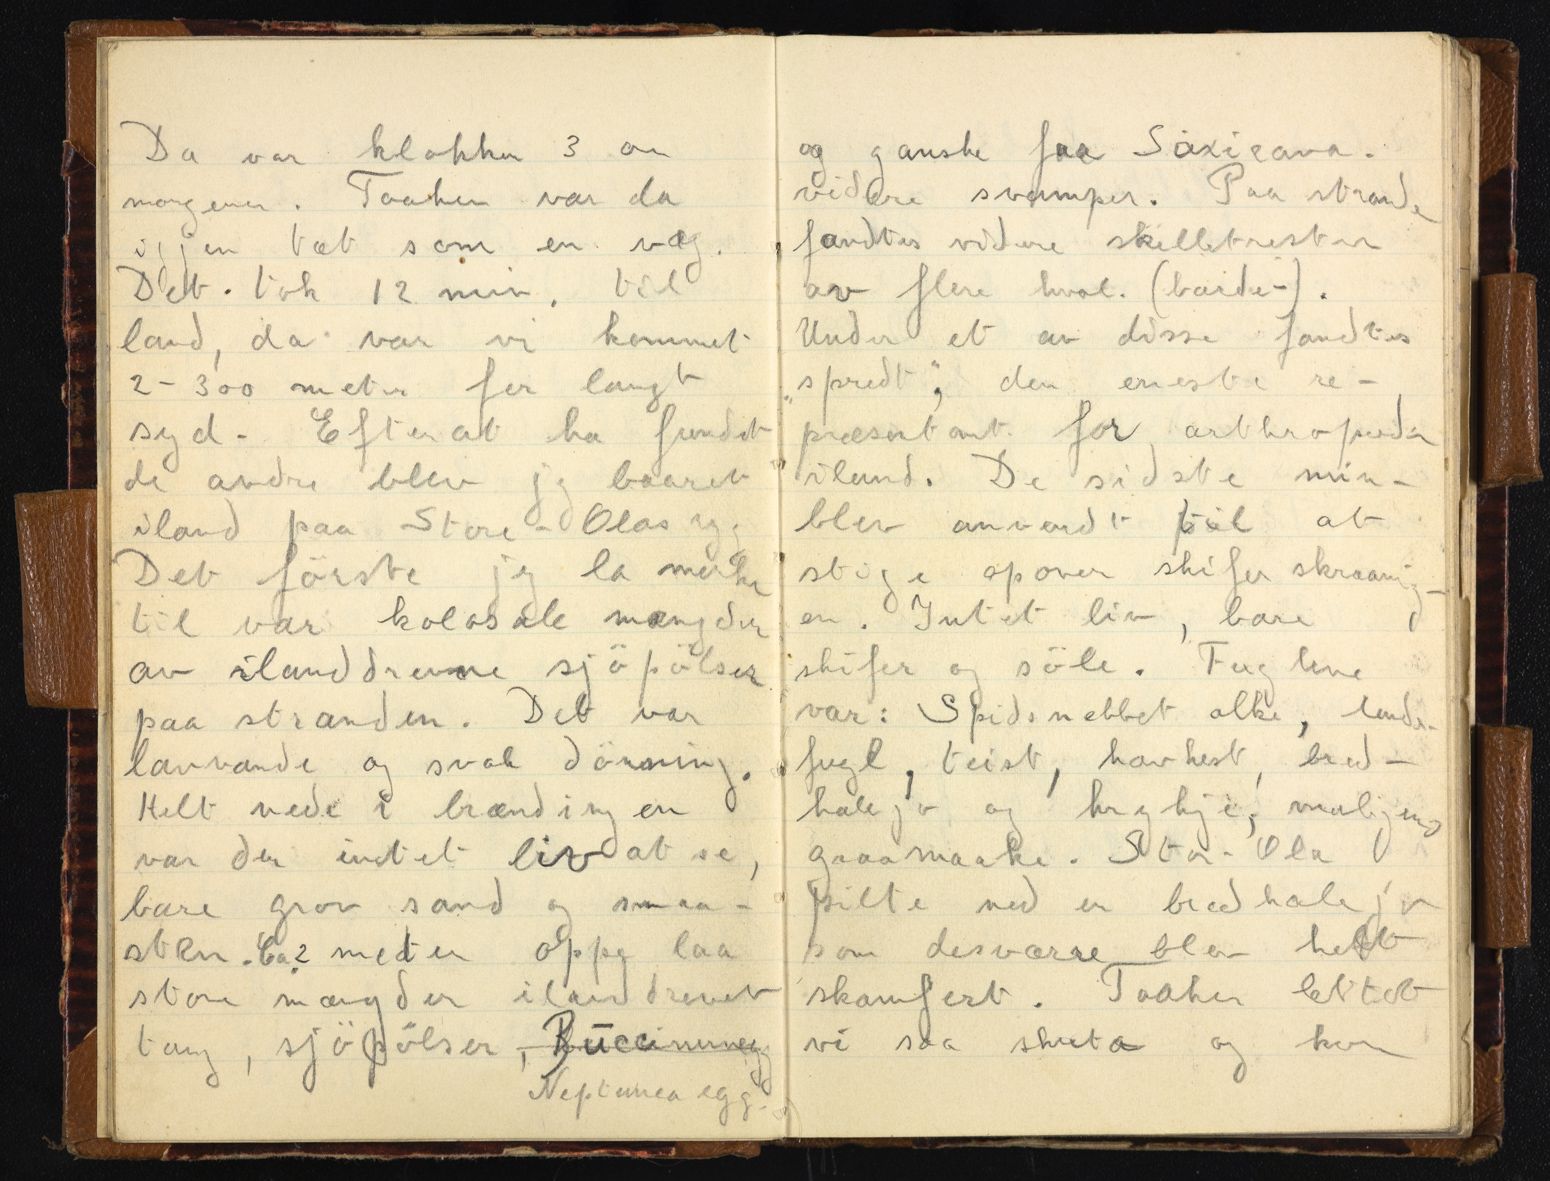 Da var klokken 3 om
morgenen. Taaken var da
igjen tæt som en væg.
Det tok 12 min. til
land, da var vi kommet
2-300 meter for langt
syd. Efterat ha fundet
de andre blev jeg baaret
iland paa Store-Olas ryg.
Det förste jeg la merke
til var kolosale mængder
av ilanddrevne sjöpölser
paa stranden. Det var
lavvande og svak dönning.
Helt nede i brændingen
var der intet liv at se,
bare grov sand og smaa-
sten. Ca 2 meter oppe laa
store mængder ilanddrevet
tang, sjöpölser, Buccinumegg
Neptunea egg.
og ganske faa Saxicava.
videre svamper. Paa strande
fandtes videre skelletrester
av flere hval. (barde-).
Under et av disse fandtes
"spredt", den eneste re-
præsentant for arthropoder
iland. De sidste min-
blev anvendt til at
stige opover skifer skraaning-
en. Intet liv, bare
skifer og söle. Fuglene
var: Spidsnebbet alke, lunde-
fugl, teist, havhest, bred-
halejo og krykje, muligens
graamaake. Stor-Ola
pilte ned en bredhalejo
som desværre blev helt
skamfert. Taaken lettet
vi saa skuta og kom